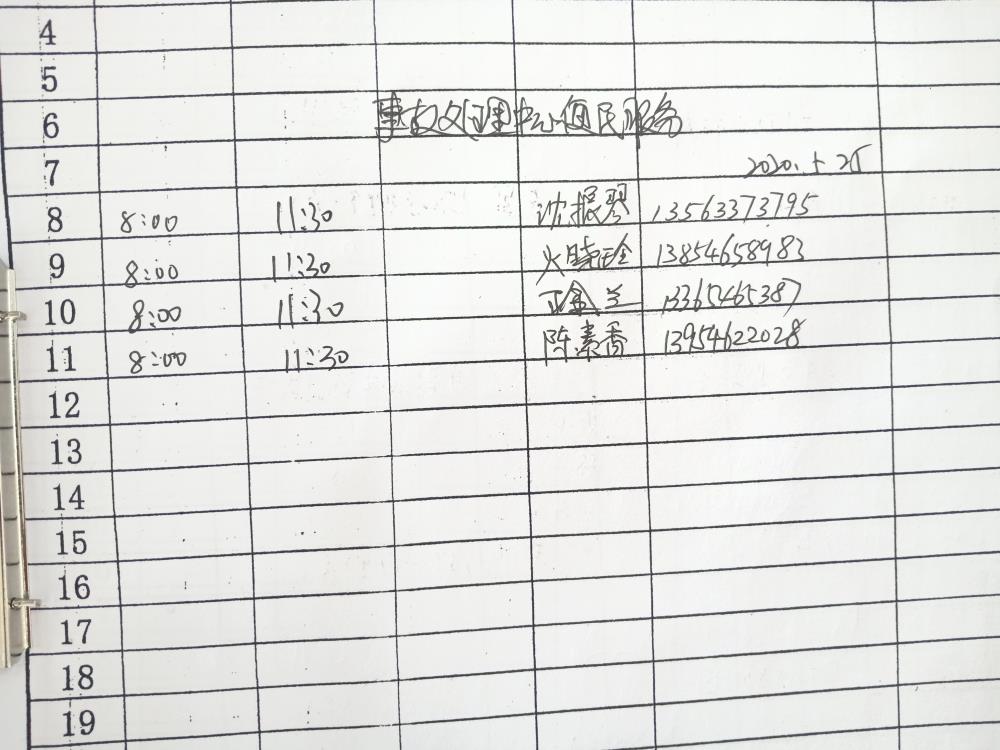 4
5
6 事故处理中心便民服务
7 2020.5.25
8 8:00 11:30 沈振琴 13563373795
9 8:00 11:30 13854658983
10 8:00 11:30 13365465387
11 8:00 11:30 陈素香 13954622028
12
13
14
15
16
17
18
19